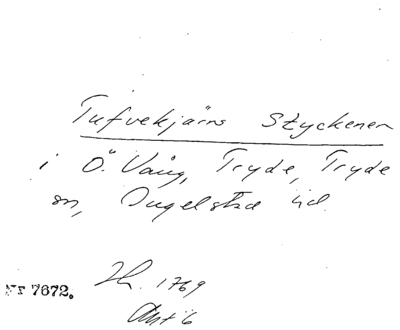 Tufvekjärns Styckenen
i Ö. Vång, Tryde, Tryde
sn, Ingelstad hd
Lh. 1769
Akt 6
Nr 7672.